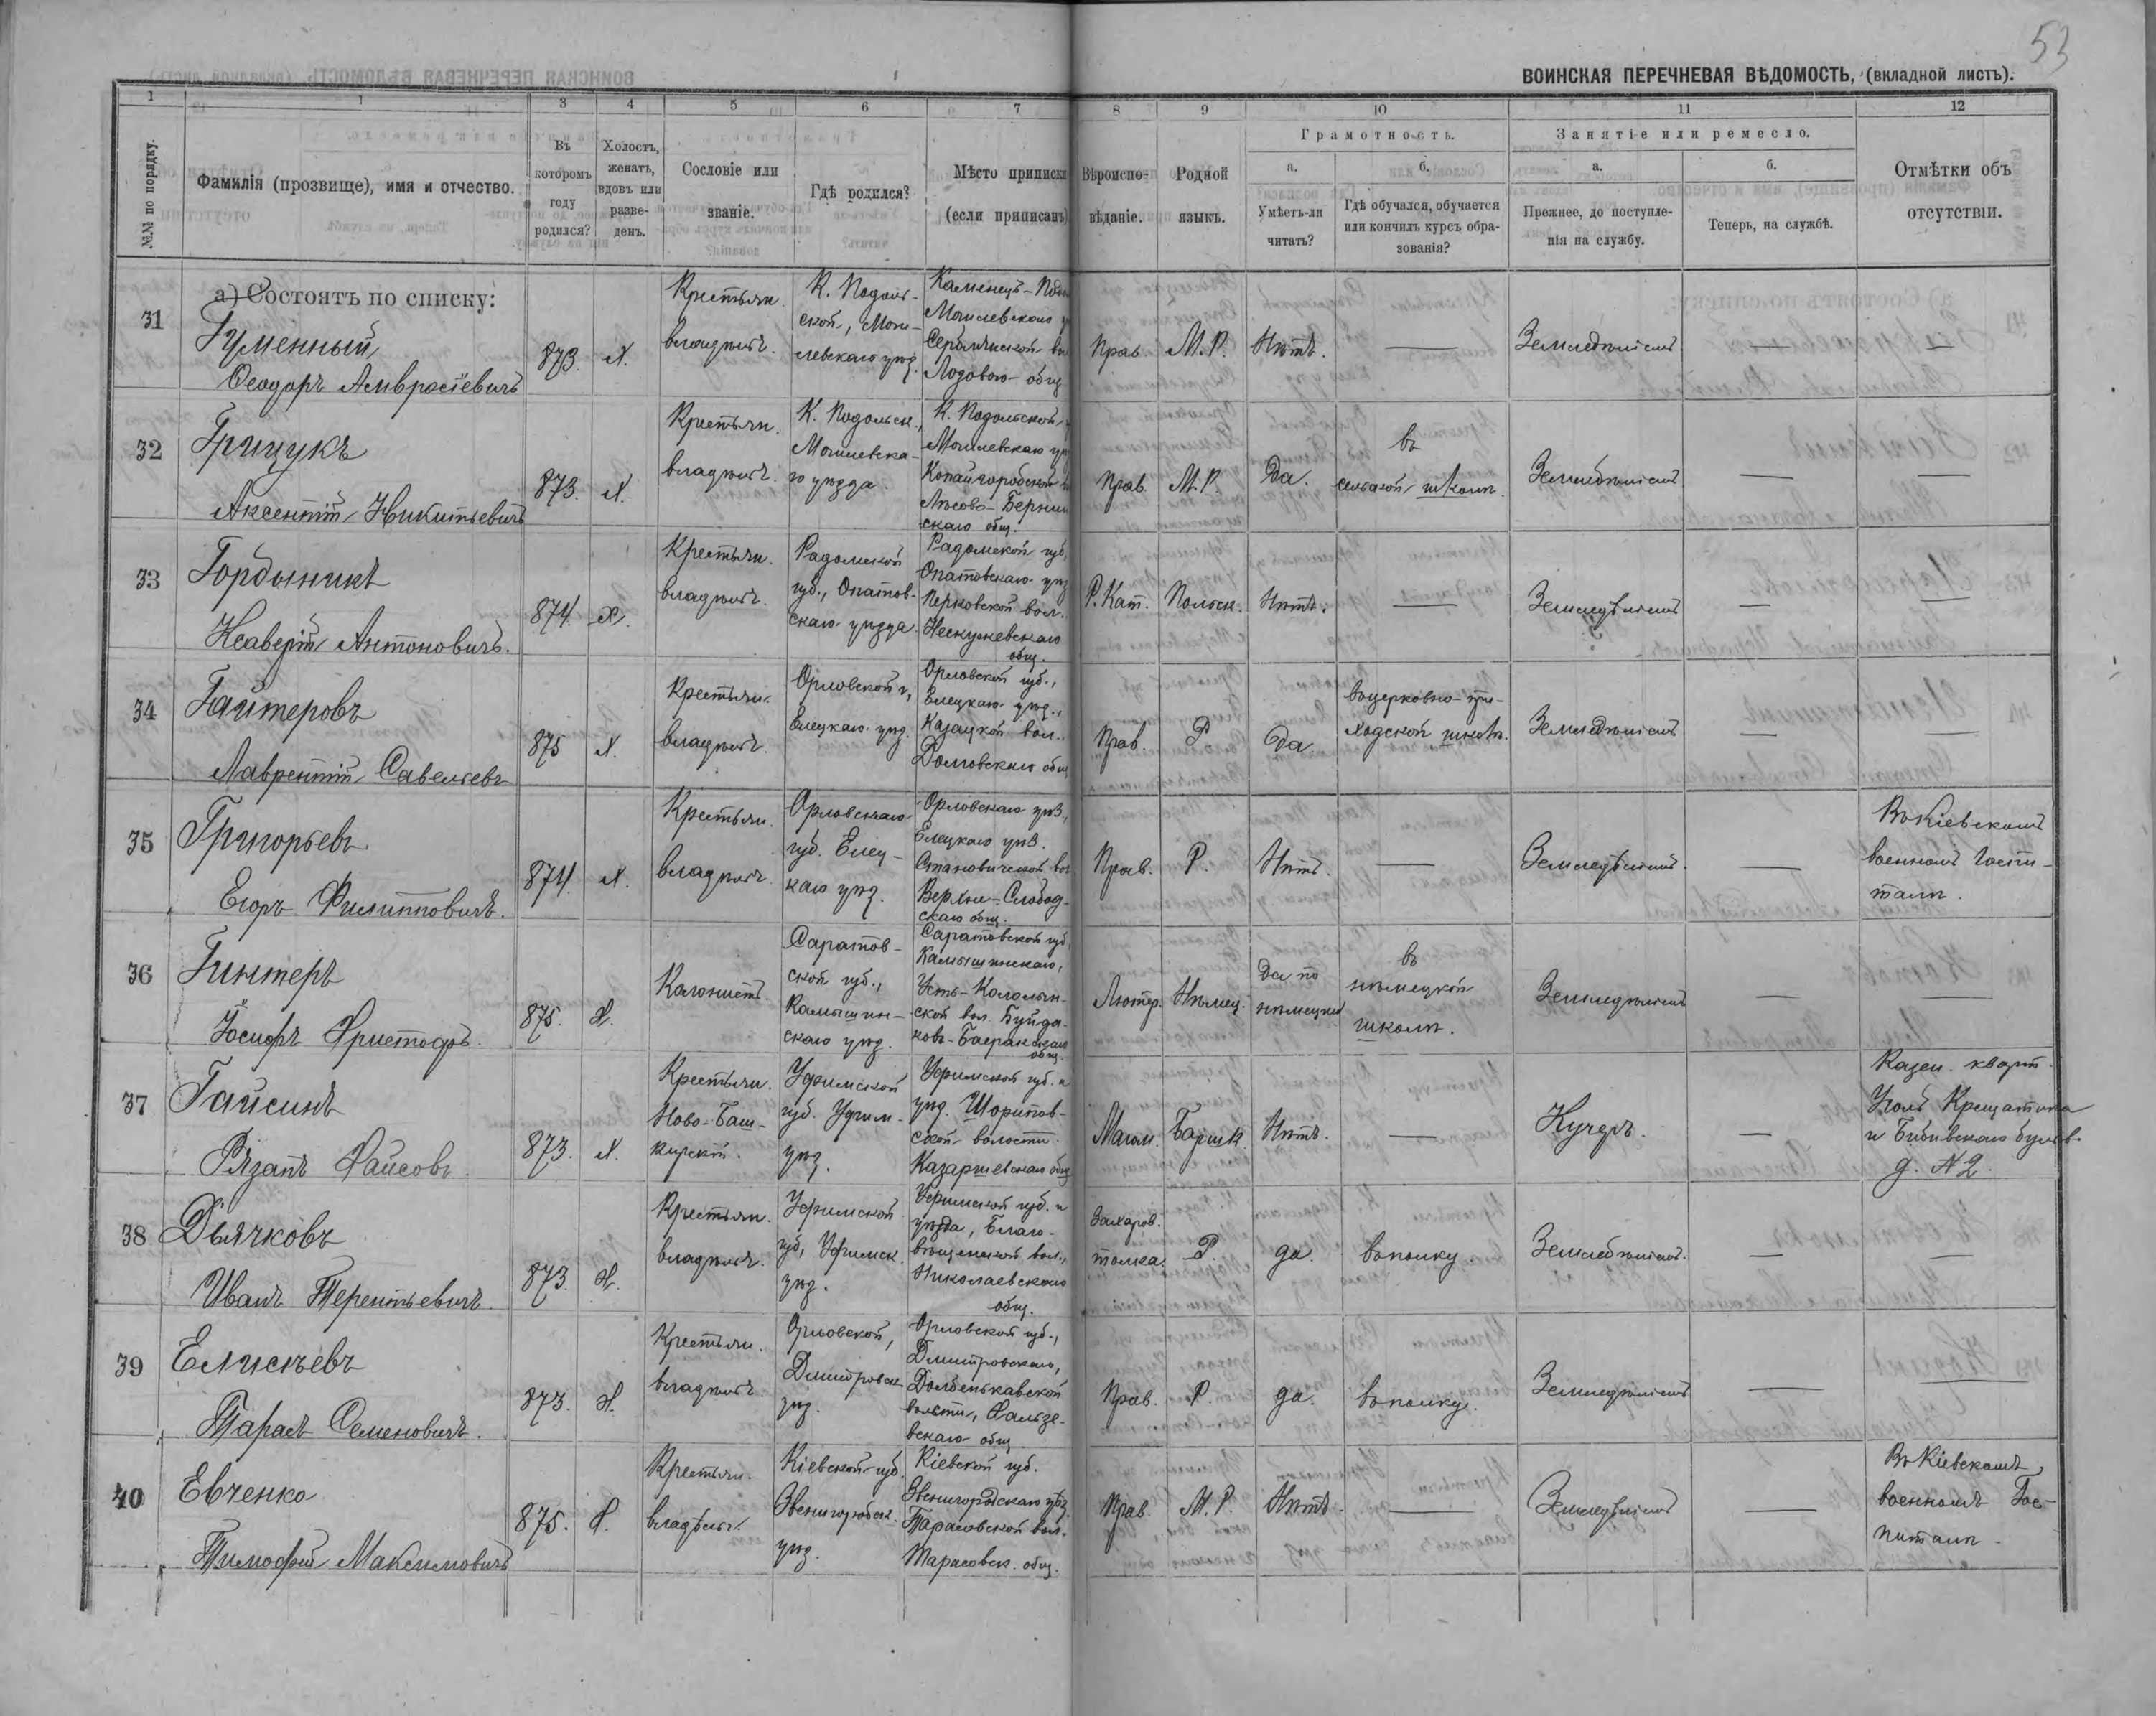 53
ВОИНСКАЯ ПЕРЕЧНЕВАЯ ВѢДОМОСТЬ, (вкладной листъ).
1 1 3 4 5 6 7 8 9 10 11 12
№№ по порядку.
Фамилія (прозвище), имя и отчество.
Въ которомъ году родился?
Холостъ, женатъ, вдовъ или разве-денъ.
Сословіе или званіе.
Гдѣ родился?
Мѣсто приписки (если приписанъ)
Вѣроиспо-вѣданіе.
Родной языкъ.
Грамотность.
а.
Умѣетъ-ли читать?
б.
Гдѣ обучался, обучается или кончилъ курсъ обра-зованія?
Занятіе или ремесло.
а.
Прежнее, до поступле-нія на службу.
б.
Теперь, на службѣ.
Отмѣтки объ отсутствіи.
а) Состоятъ по списку:
31
Гуменный
Ѳеодоръ Амвросіевичъ
873.
Х.
Крестьян.
владѣлъч.
К. Подоль-
ской, Моги-
левскаго уѣзд.
Каменецъ-Подол
Могилевскаго у
Лозовою общ
Прав.
М.Р.
Нѣтъ.
—
Земледѣліемъ
—
—
32
Грицукъ
Аксентій Никитьевичъ
873.
Х.
Крестьян.
владѣлъч.
К. Подольск.,
Могилевска-
го уѣзда.
К. Подольской,
Могилевскаго уѣ
Копайгородской в
Лѣсово-Берлин
скаго общ.
Прав.
М.Р.
Да.
въ
сельской школѣ.
Земледѣліемъ
—
—
33
Гордыникъ
Ксаверій Антоновичъ.
874.
Х.
Крестьян.
владѣлъч.
Радомской
губ., Опатов-
скаго уѣзда.
Радомской губ,
Опатовскаго уѣзд
общ.
Р. Кат.
Польск.
Нѣтъ.
—
Земледѣліемъ
—
—
34
Гайтеровъ
Лаврентій Савельевъ
875
Х.
Крестьян.
владѣлъч.
Орловской г,
Елецкаго уѣзд.
Орловской губ.,
Елецкаго уѣзд.,
Казацкой вол.,
Долговскаго общ
Прав.
Р
Да.
въ церковно-при-
ходской школѣ.
Земледѣліемъ
—
—
35
Григорьевъ
Егоръ Филипповичъ.
874.
Х.
Крестьян.
владѣлъч.
Орловскаго
губ. Елец-
каго уѣзд.
Орловскаго уѣз.,
Елецкаго уѣз.
Становичской вол
Верхне-Слобод-
скаго общ.
Прав.
Р.
Нѣтъ.
—
Земледѣліемъ.
—
Въ Кіевскомъ
военномъ госпи-
талѣ.
36
Гинтеръ
Іосифъ Христофъ.
875.
Х.
Колонистъ.
Саратов-
ской губ.,
Камышин-
скаго уѣзд.
Саратовской губ
Камышинскаго,
ской вол. Буйда-
ковъ-Баеракскаго
общ.
Лютер.
Нѣмец.
Да по
нѣмецки
въ
нѣмецкой
школѣ.
Земледѣліемъ
—
—
37
Гайсинъ
Рязапъ Файсовъ
873.
Х.
Крестьян.
Ново-Баш-
кирскій.
Уфимской
губ. Уфим.
уѣзд.
Уфимской губ. и
уѣзд. Шарипов-
ской волости
Магом.
Башк.
Нѣтъ.
—
Кучеръ.
—
Казен. кварт.
Уголъ Крещатика
и Бибивскаго бульв.
д. № 2.
38
Дьячковъ
Иванъ Терентьевичъ.
873.
Х.
Крестьян.
владѣлъч.
Уфимской
губ, Уфимск.
уѣзд.
Уфимской губ. и
уѣзда, Благо-
вѣщенской вол.,
Николаевскаго
общ.
Р.
да.
въ полку
Земледѣліемъ.
—
—
39
Елисѣевъ
Тарасъ Семеновичъ.
873.
Х.
Крестьян.
владѣлъч.
Орловской,
Дмитровск.
уѣзд.
Орловской губ.,
Дмитровскаго,
Долбенькавской
волости,
вскаго общ
Прав.
Р.
да.
въ полку.
Земледѣліемъ
—
—
40
Евченко
Тимофей Максимовичъ
875.
Х.
Крестьян.
владѣльч.
Кіевской губ.
Звенигородск.
уѣзд.
Кіевской губ.
Звенигородскаго уѣзд.
Тарасовской вол.
Тарасовск. общ.
Прав.
М.Р.
Нѣтъ.
—
Земледѣліемъ
—
Въ Кіевскомъ
военномъ Гос-
питалѣ.